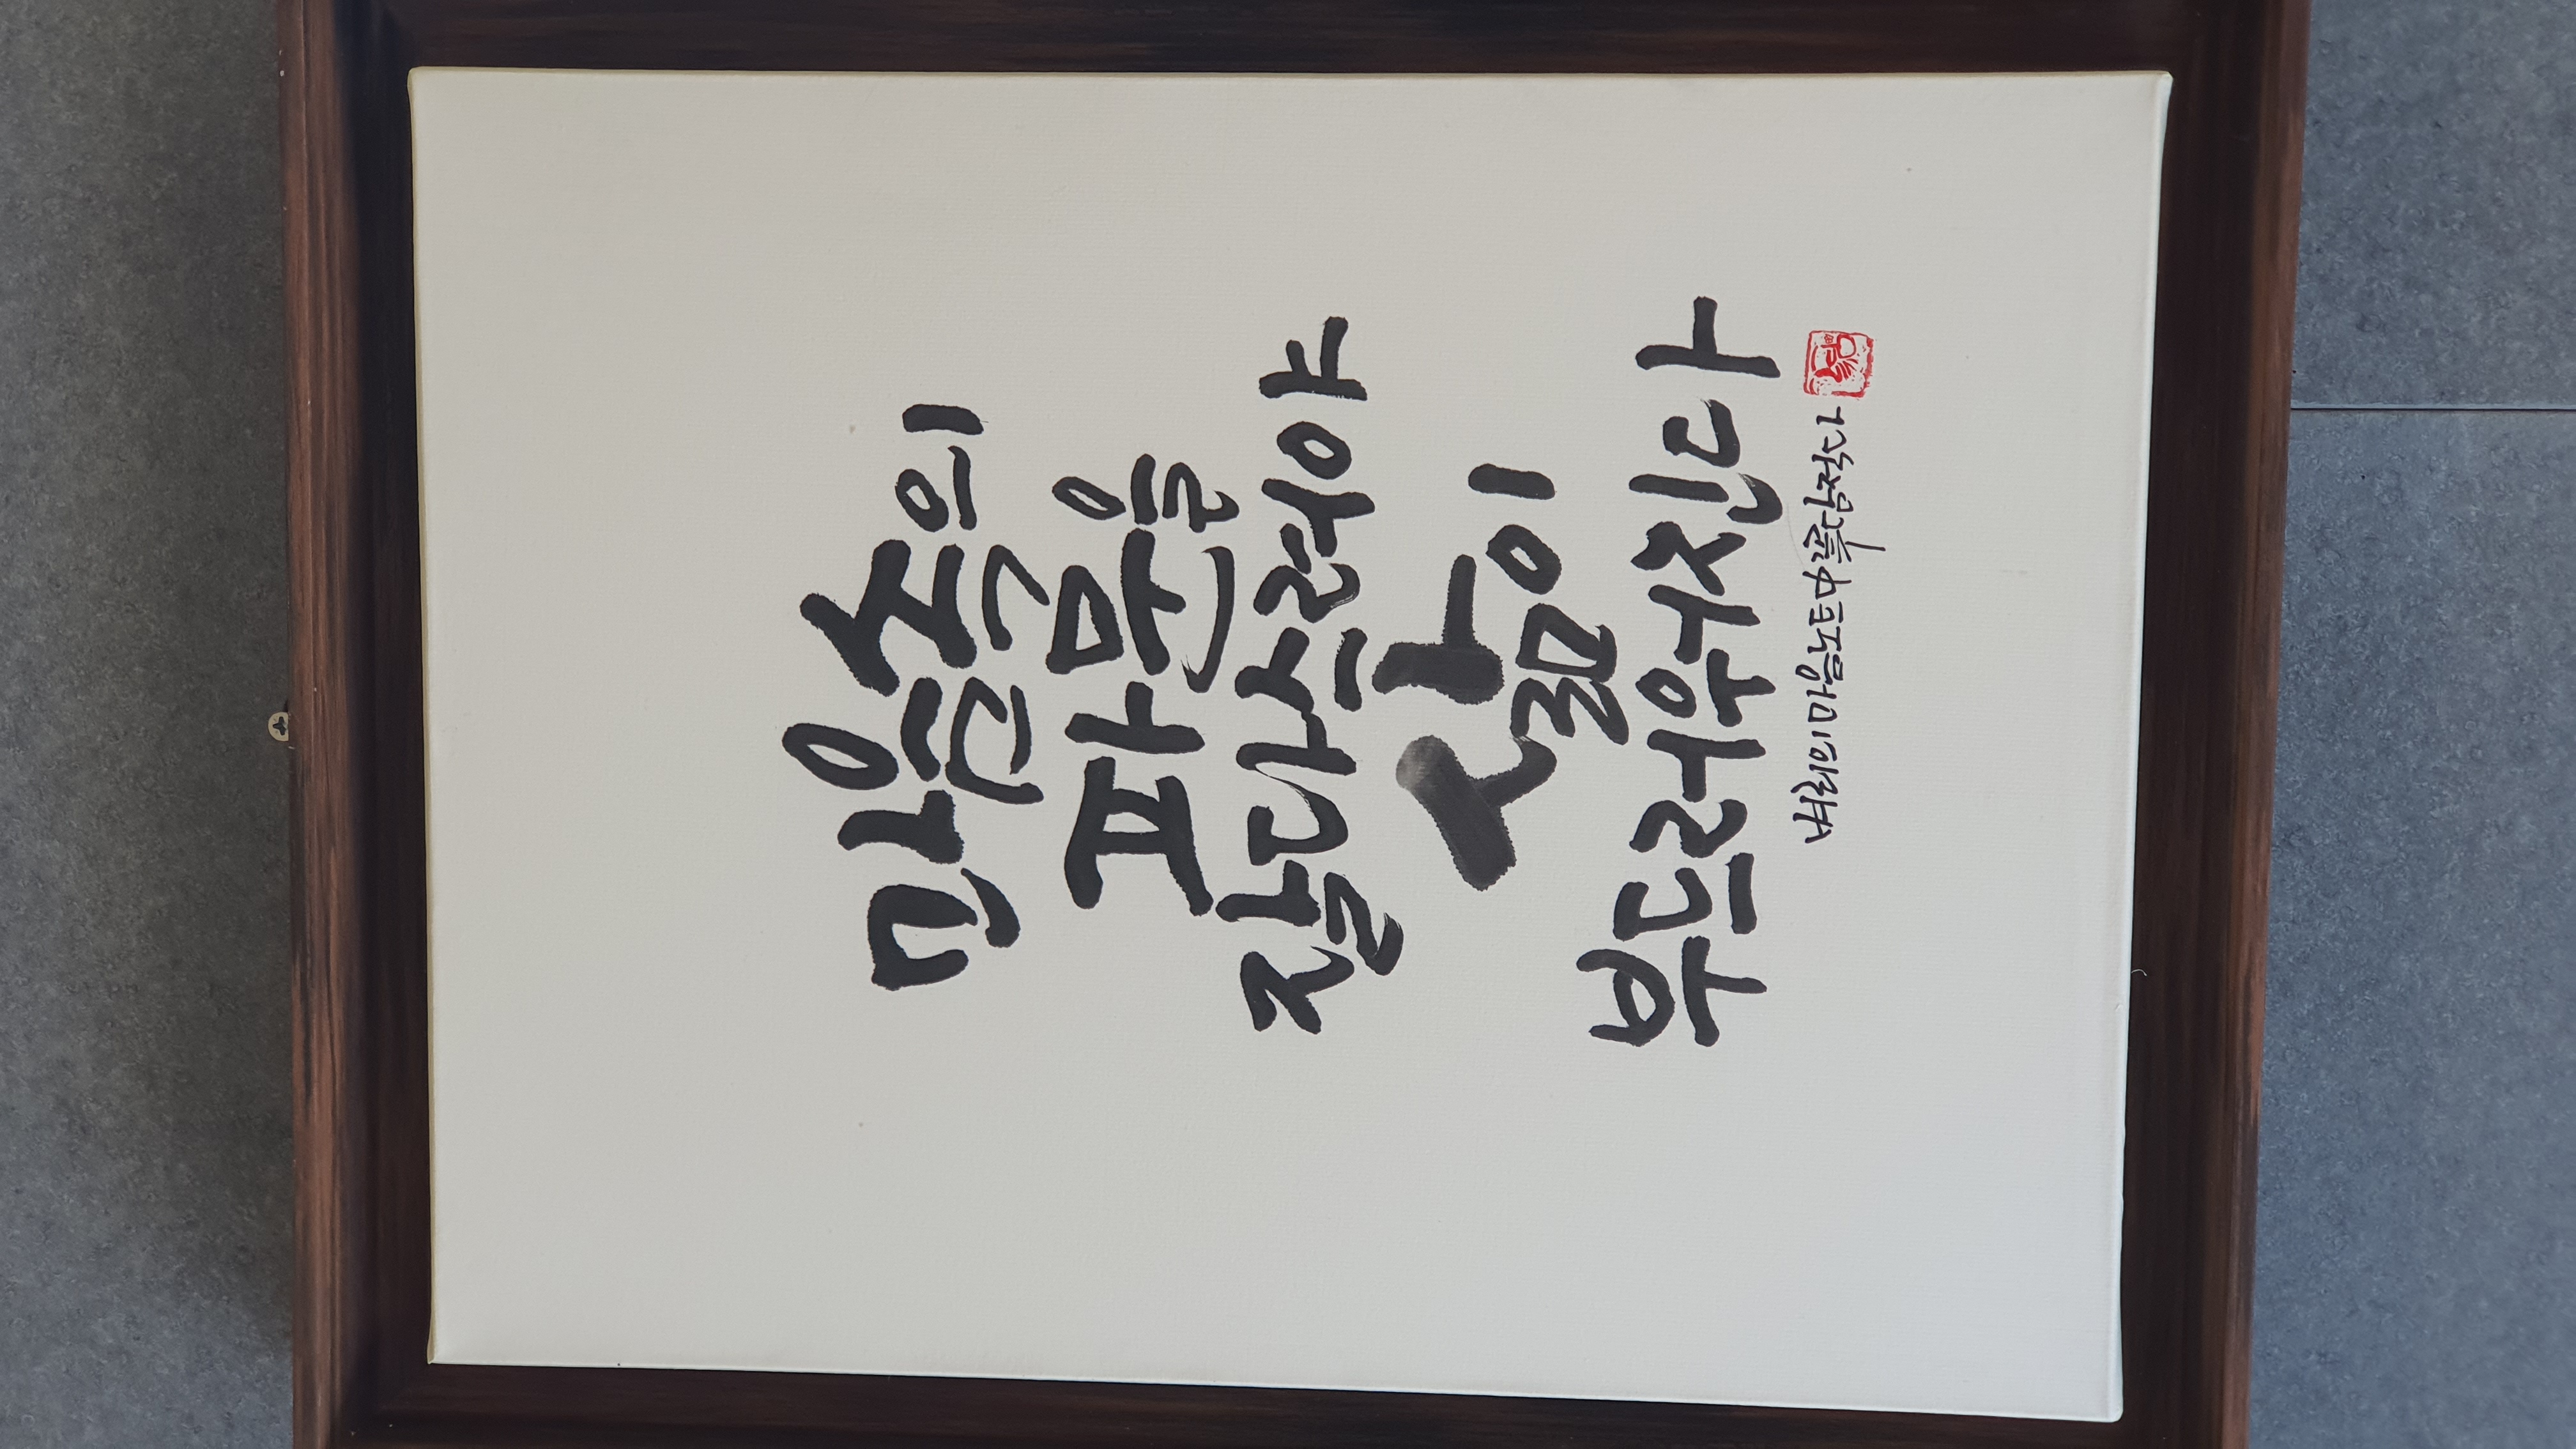 마음속의
파문을
잘다스려야
삶이
부드러워진다
벼리의마음노트中 담적다